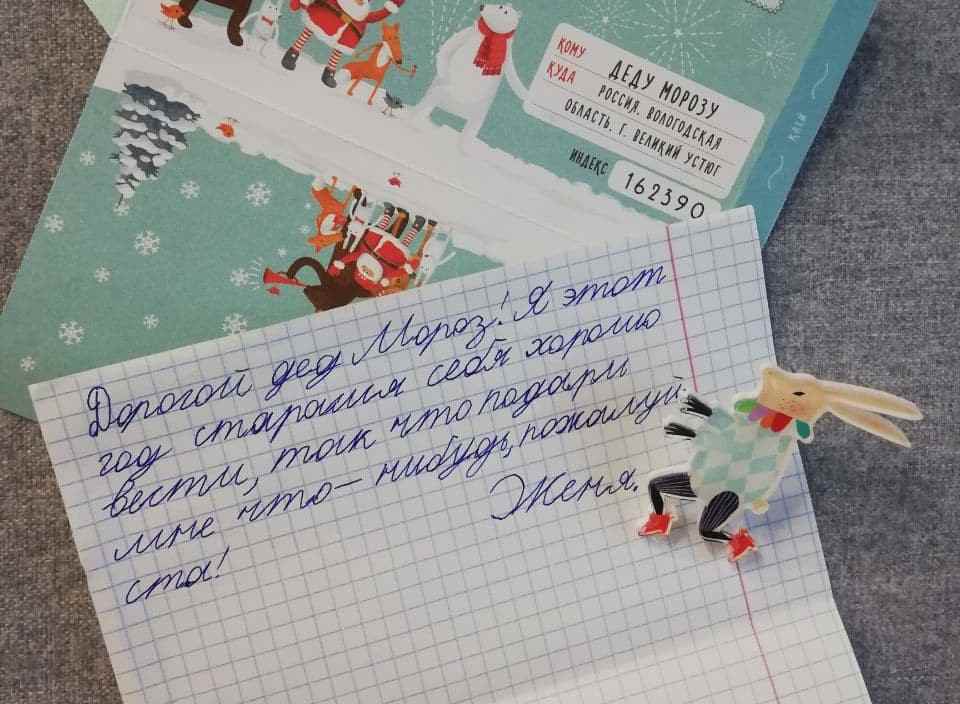 КОМУ ДЕДУ МОРОЗУ
КУДА РОССИЯ. ВОЛОГОДСКАЯ
ОБЛАСТЬ. Г. ВЕЛИКИЙ УСТЮГ
ИНДЕКС 162390
КЛЕЙ
Дорогой дед Мороз! Я этот
год старался себя хорошо
вести, так что подари
мне что-нибудь, пожалуй-
ста!
Женя.